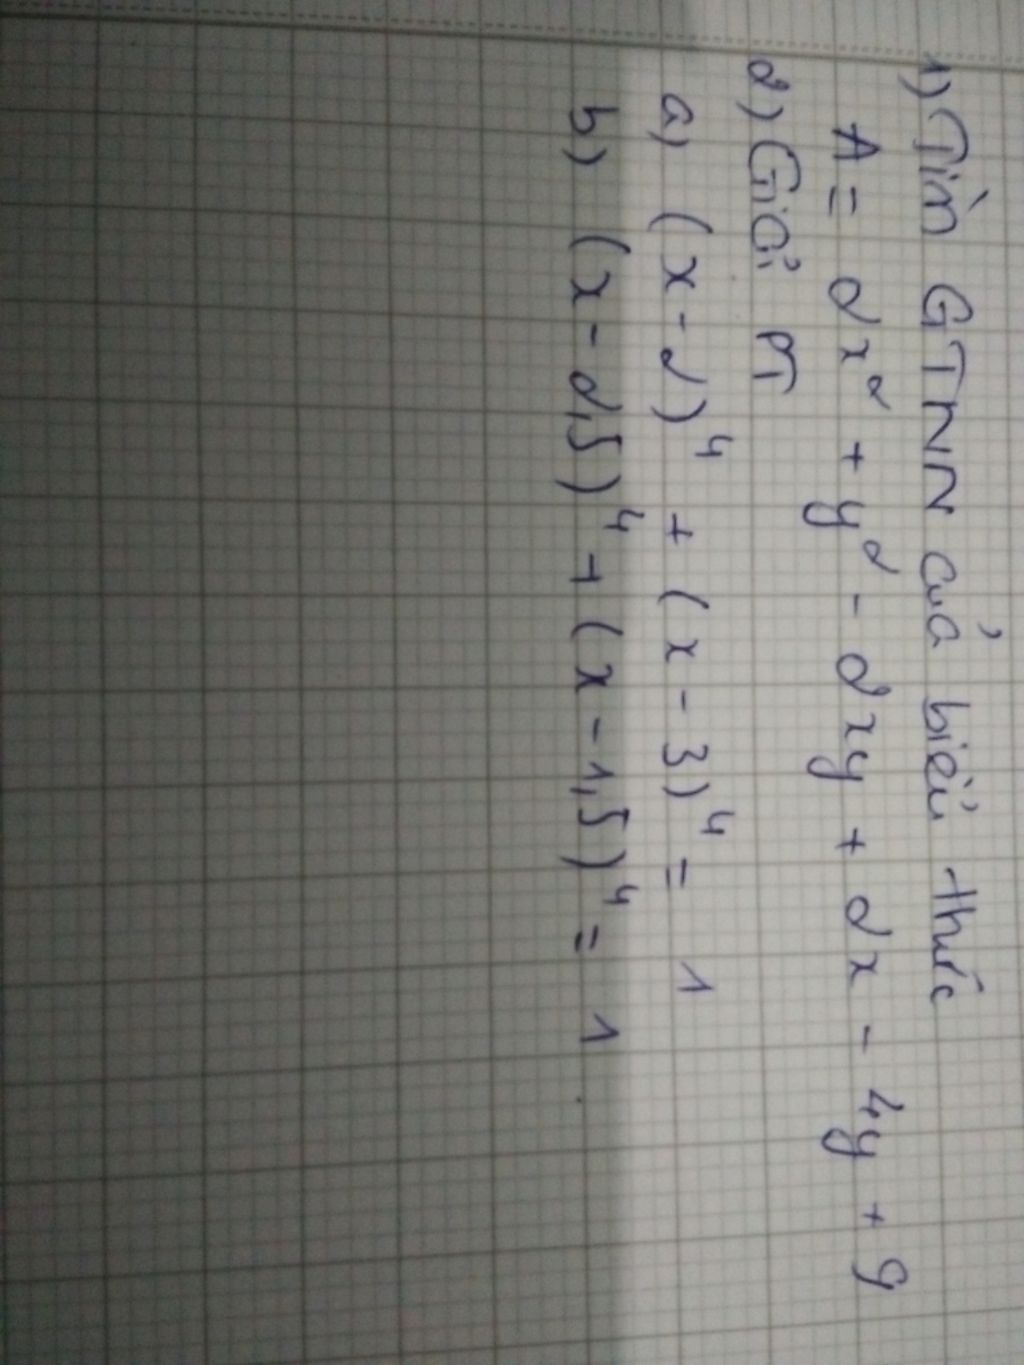 1) Tìm GTNN của biểu thức
A = 2x² + y² - 2xy + 2x - 4y + 9
2) Giải PT
a) (x - 2)⁴ + (x - 3)⁴ = 1
b) (x - 2,5)⁴ + (x - 1,5)⁴ = 1